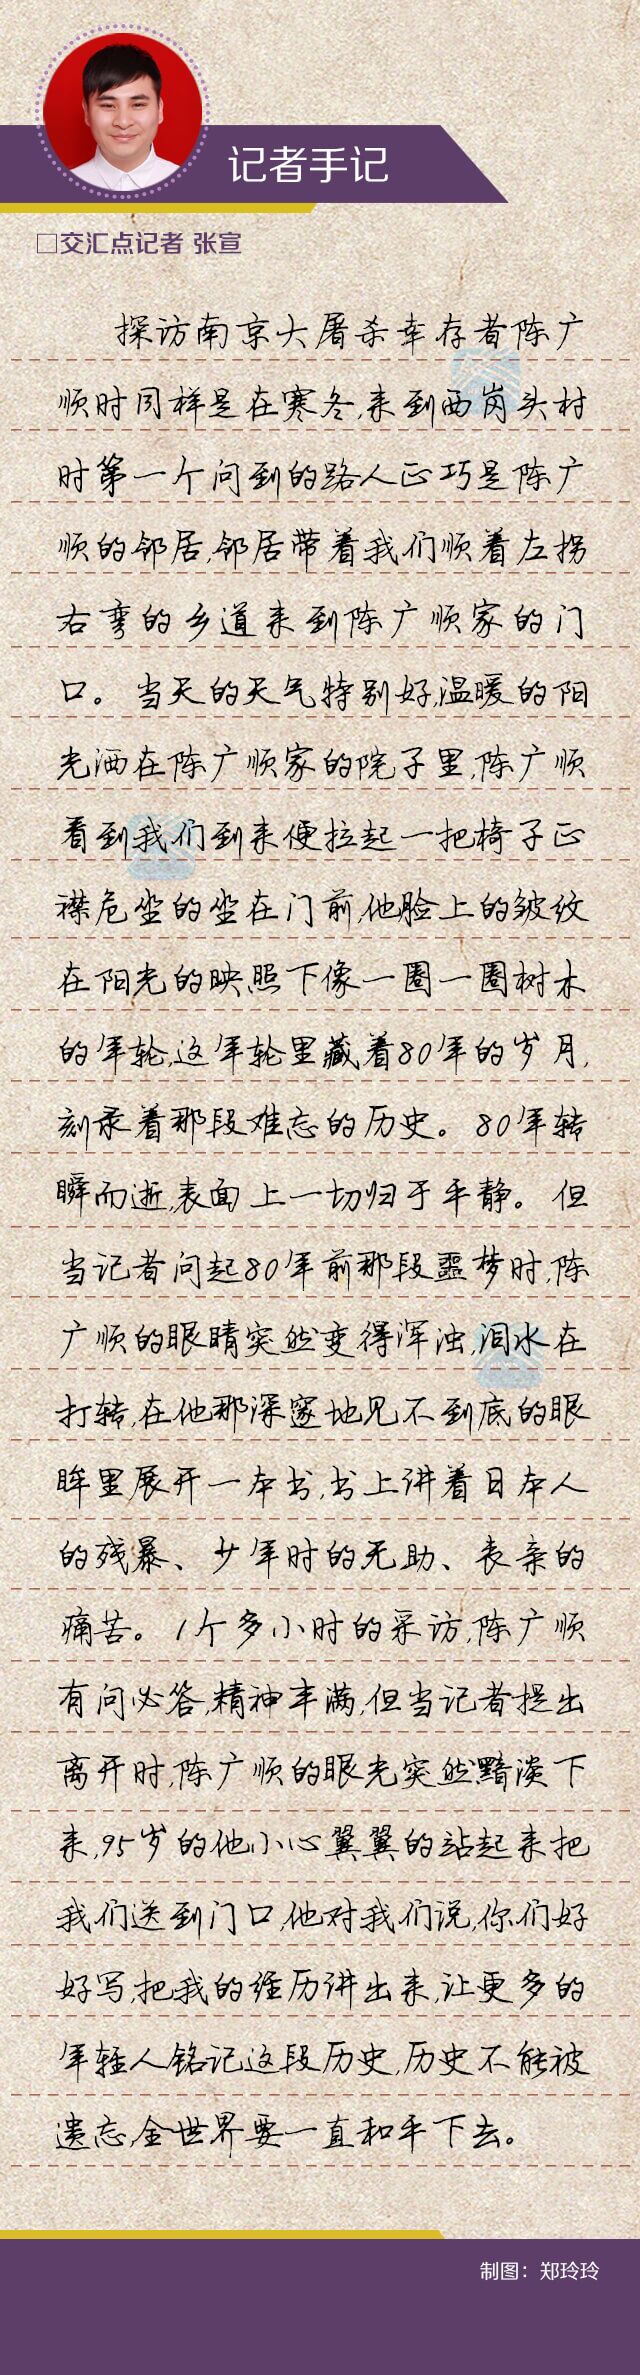 记者手记
□交汇点记者 张宣
探访南京大屠杀幸存者陈广
顺时同样是在寒冬,来到西岗头村
时第一个问到的路人正巧是陈广
顺的邻居,邻居带着我们顺着左拐
右弯的乡道来到陈广顺家的门
口。当天的天气特别好,温暖的阳
光洒在陈广顺家的院子里,陈广顺
看到我们到来便拉起一把椅子正
襟危坐的坐在门前,他脸上的皱纹
在阳光的映照下像一圈一圈树木
的年轮,这年轮里藏着80年的岁月,
刻录着那段难忘的历史。80年转
瞬而逝,表面上一切归于平静。但
当记者问起80年前那段噩梦时,陈
广顺的眼睛突然变得浑浊,泪水在
打转,在他那深邃地见不到底的眼
眸里展开一本书,书上讲着日本人
的残暴、少年时的无助、丧亲的
痛苦。1个多小时的采访,陈广顺
有问必答,精神丰满,但当记者提出
离开时,陈广顺的眼光突然黯淡下
来,95岁的他小心翼翼的站起来把
我们送到门口,他对我们说,你们好
好写,把我的经历讲出来,让更多的
年轻人铭记这段历史,历史不能被
遗忘,全世界要一直和平下去。
制图：郑玲玲